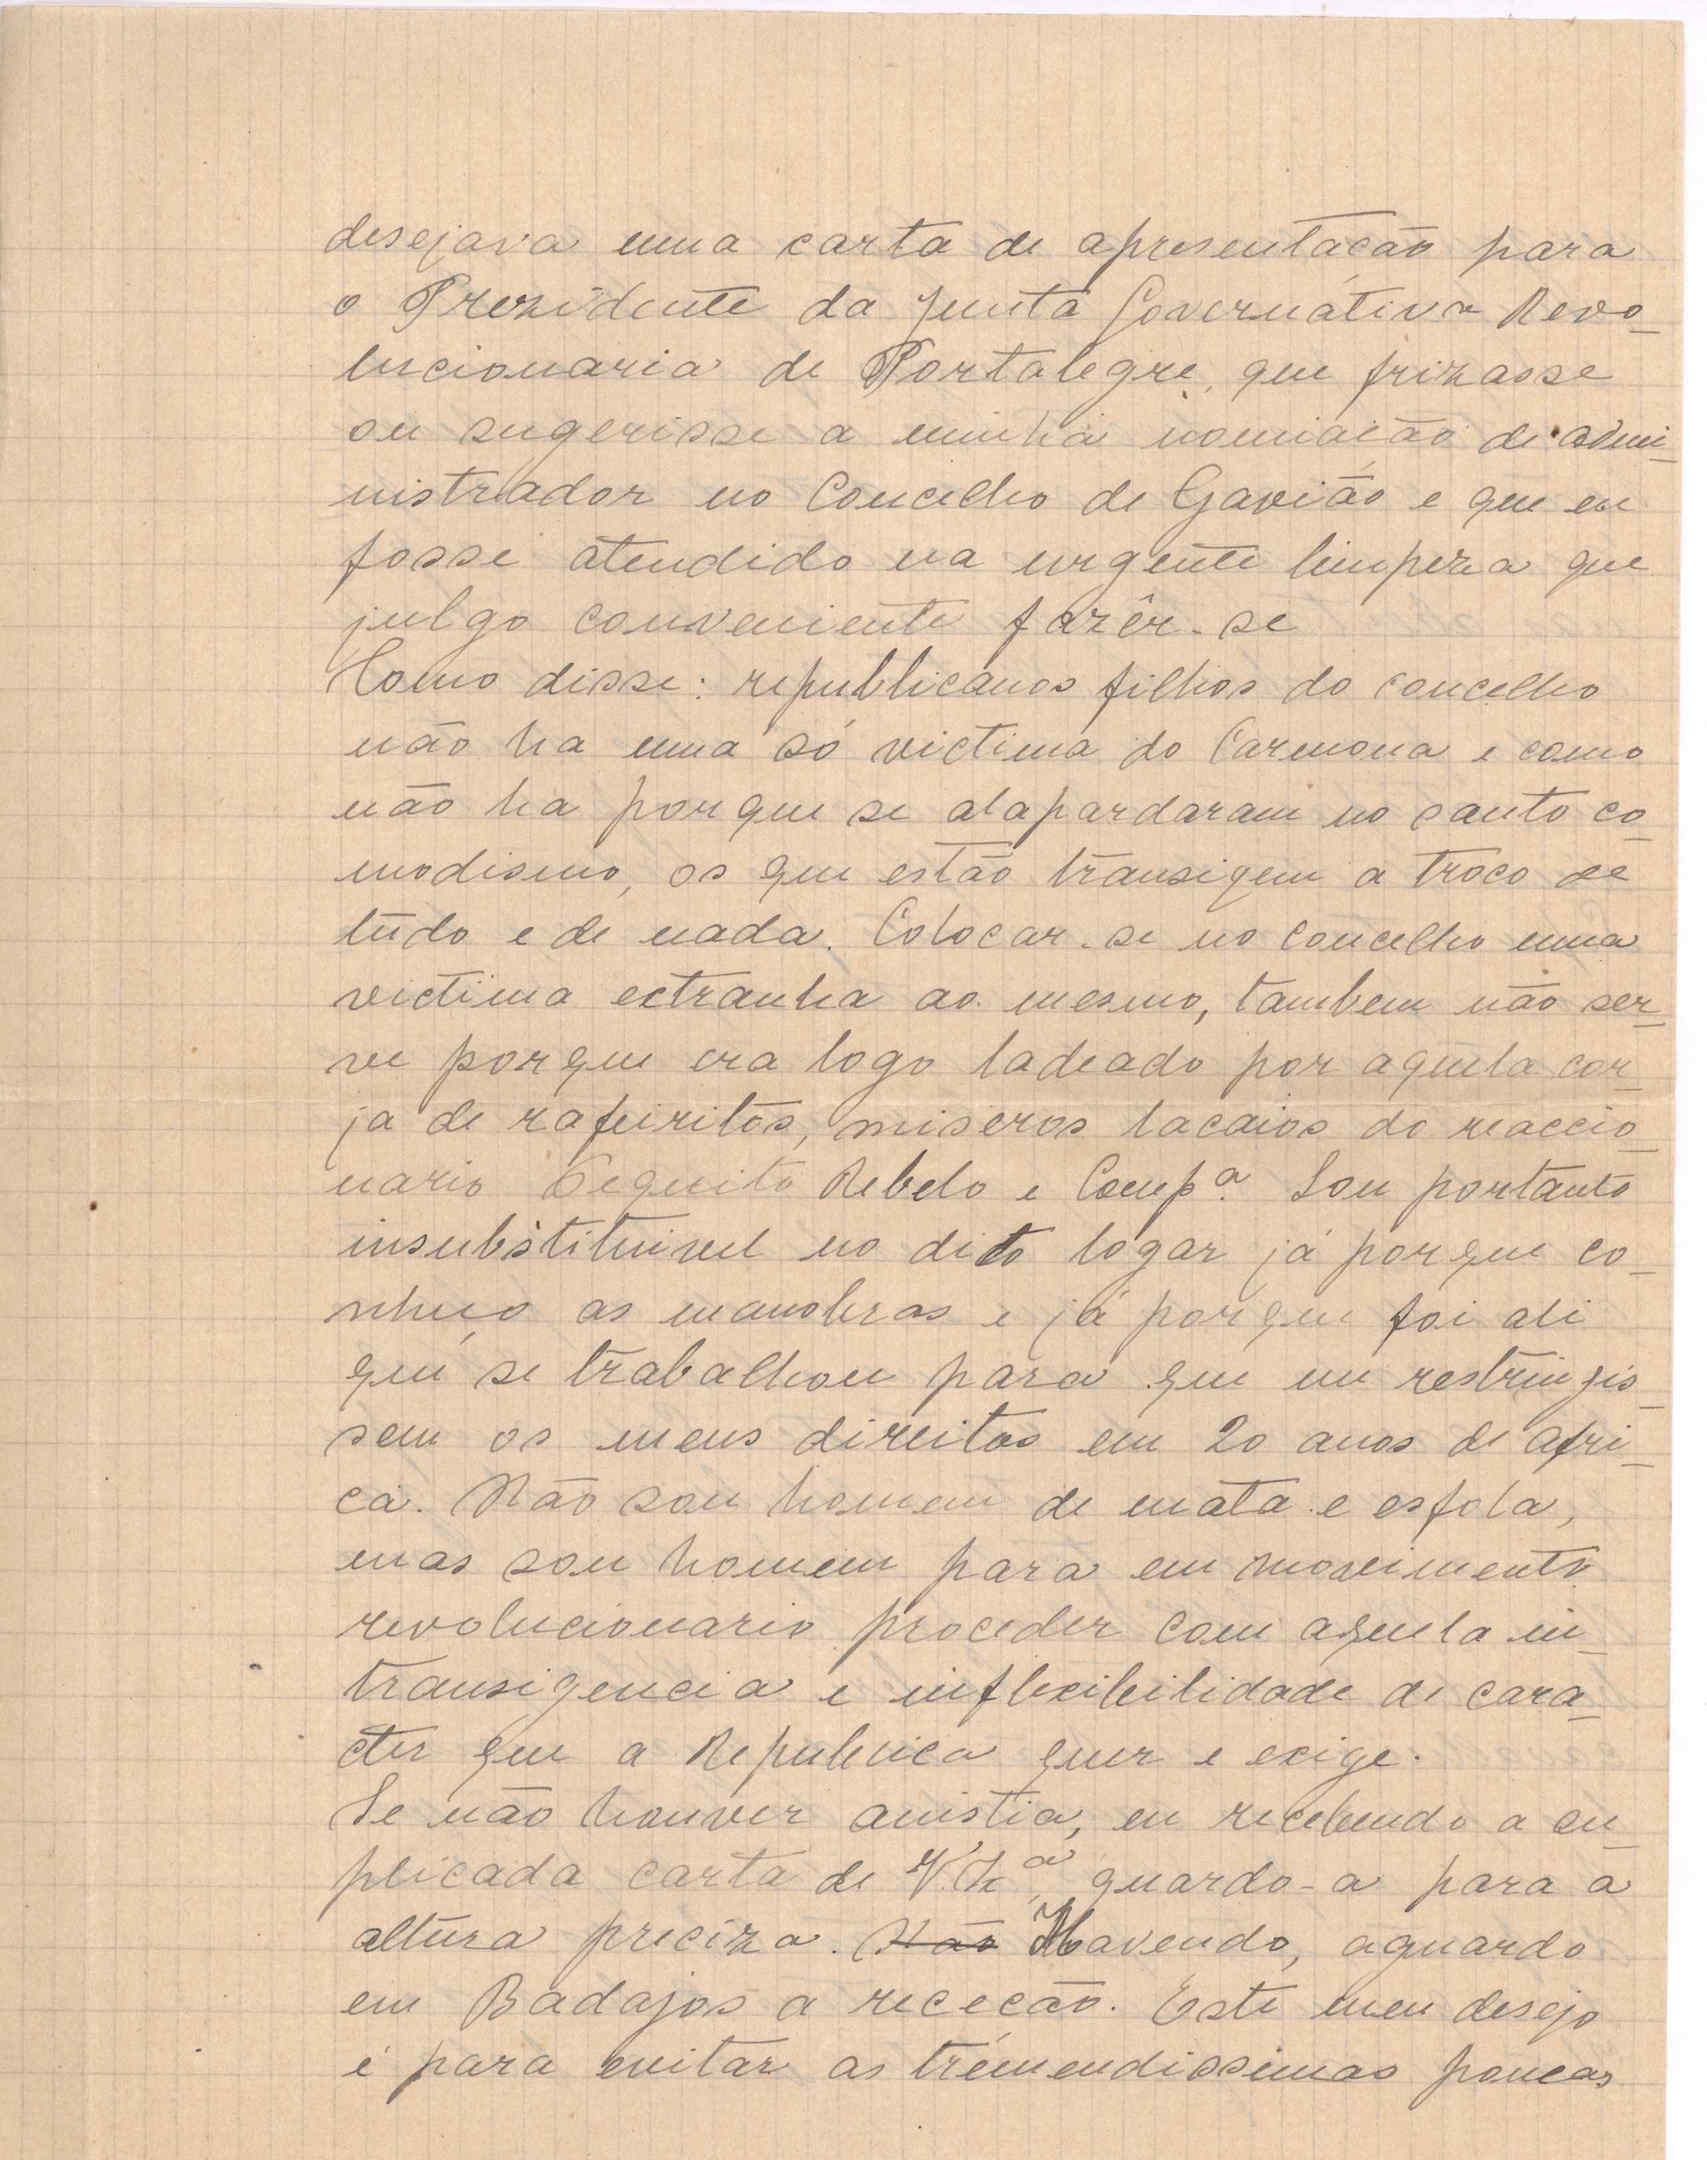 desejava uma carta de apresentação para
o Prezidente da Junta Governátiva Revo-
lucionaria de Portalegre, que frizasse
ou sugerisse a minha nomiação de admi-
nistrador no Concelho de Gavião e que eu
fosse atendido na urgente limpeza que
julgo conveniente fazêr-se
Como disse: republicanos filhos do concelho
não ha uma só victima do Carmona e como
não ha porque se alapardaram no canto co-
modismo, os que estão transigem a troco de
tudo e de nada. Colocar-se no concelho uma
victima extranha ao mesmo, tambem não ser-
ve porque era logo ladeado por aquela cor-
ja de rafeiritos, miseros lacaios do reaccio-
nario Pequito Rebelo e Compª. Sou portanto
insubstituivel no dito logar já porque co-
nheço as manobras e já porque foi ali
que se trabalhou para que me restringis-
sem os meus direitos em 20 anos de Afri-
ca. Não sou homem de mata e esfola,
mas sou homem para em movimento
revolucionario proceder com aquela in-
transigencia e inflexibilidade de cara-
cter que a Republica quer e exige.
Se não houver anistia, eu recebendo a su-
plicada carta de V. Exª, guardo-a para a
altura preciza. Não Havendo, aguardo
em Badajos a receção. Este meu desejo
é para evitar as tremendissimas poucas